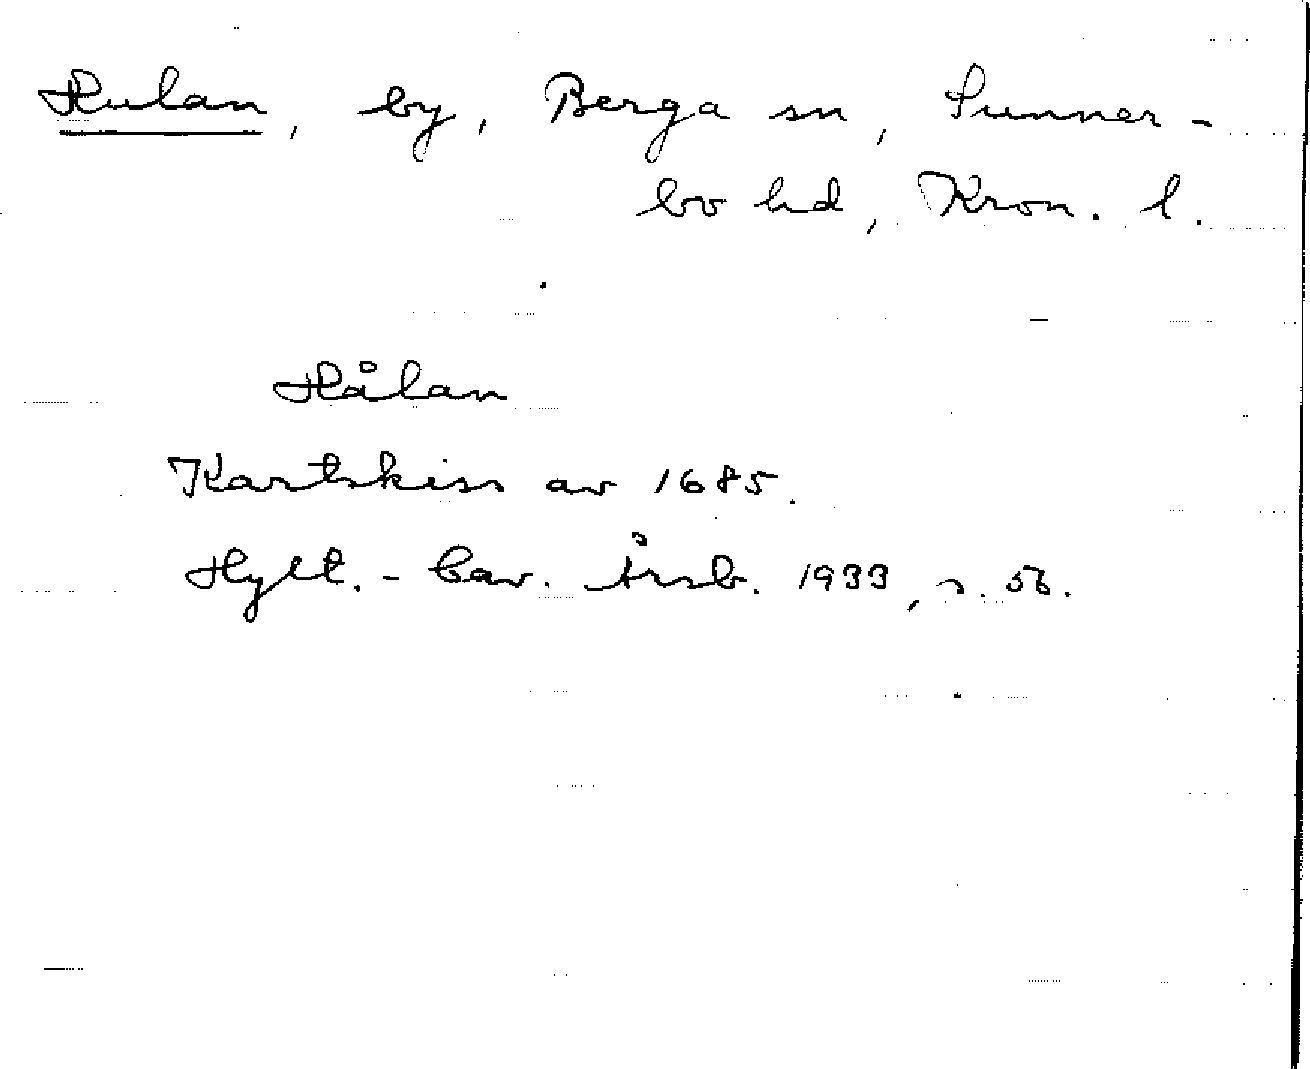 Hulan, by, Berga sn, Sunner-
bo hd, Kron. l.
Hålan
Kartskiss av 1685.
Hylt.-Cav. Årsb. 1933, s. 56.